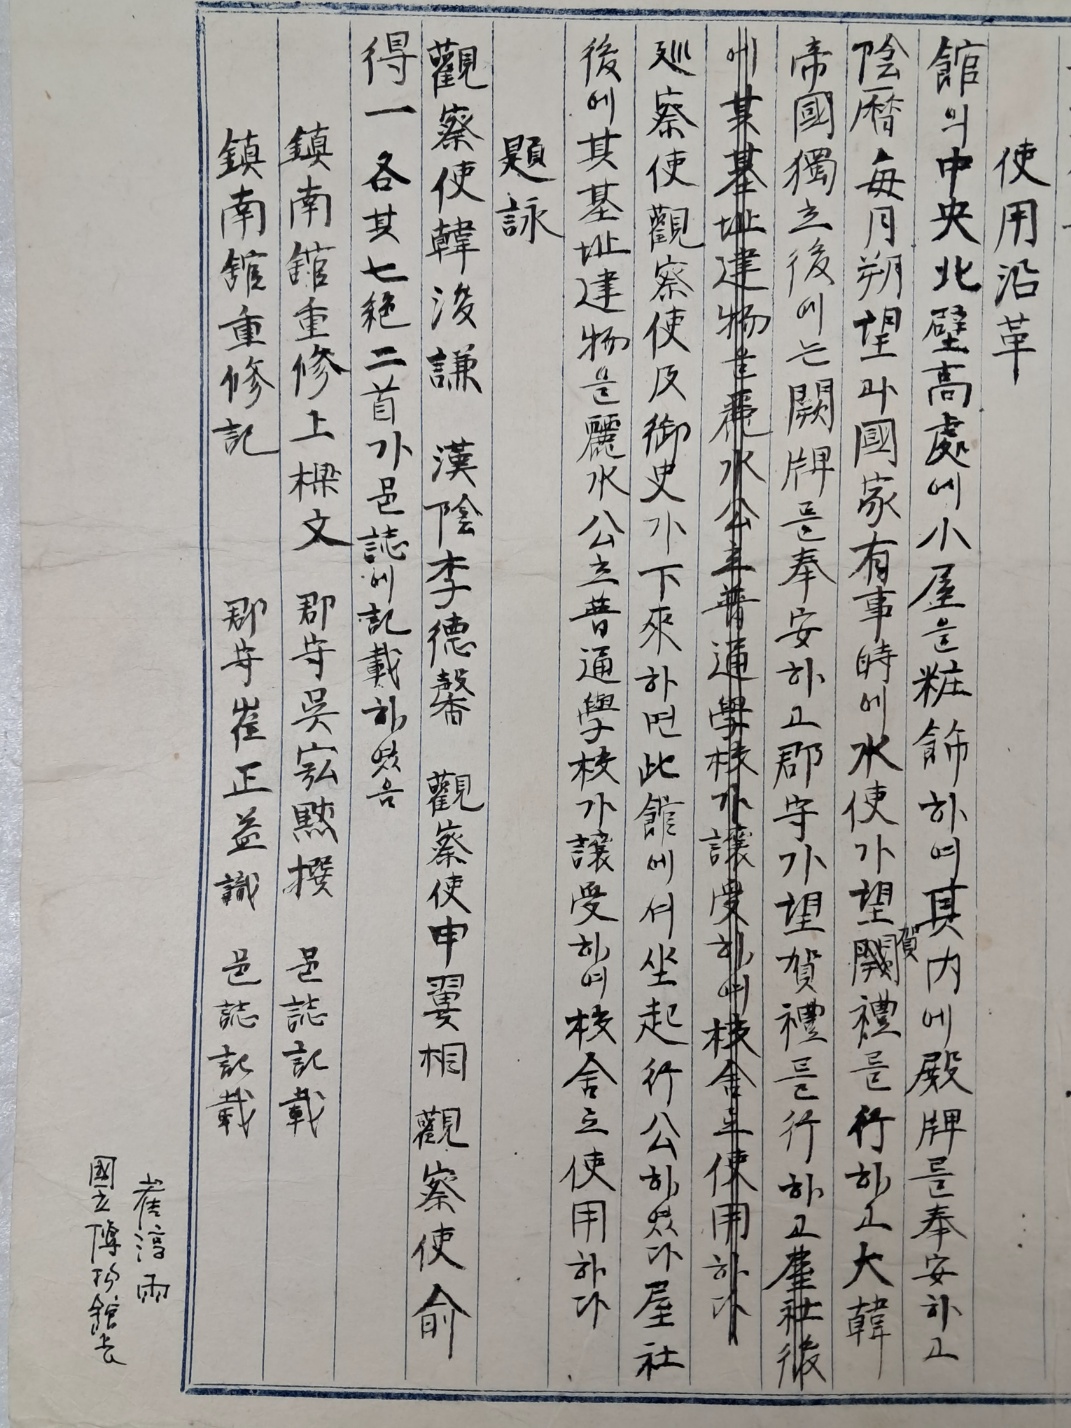 使用沿革
館의中央北壁高處에小屋을粧飾하여其內에殿牌를奉安하고
陰曆每月朔望과國家有事時에水使가望闕賀禮를行하고大韓
帝國獨立後에는闕牌를奉安하고郡守가望賀禮를行하고屋社後
에其基址建物을麗水公立普通學校가讓受하여校舍로使用하다
巡察使觀察使及御史가下來하면此館에서坐起行公하였다屋社
後에其基址建物을麗水公立普通學校가讓受하여校舍로使用하다
題詠
觀察使韓浚謙 漢陰李德馨 觀察使申翼相 觀察使俞
得一各其七絶二首가邑誌에記載하였음
鎮南館重修上樑文 郡守吳宖默撰 邑誌記載
鎮南館重修記 郡守崔正益識 邑誌記載
崔淳雨
國立博物館長